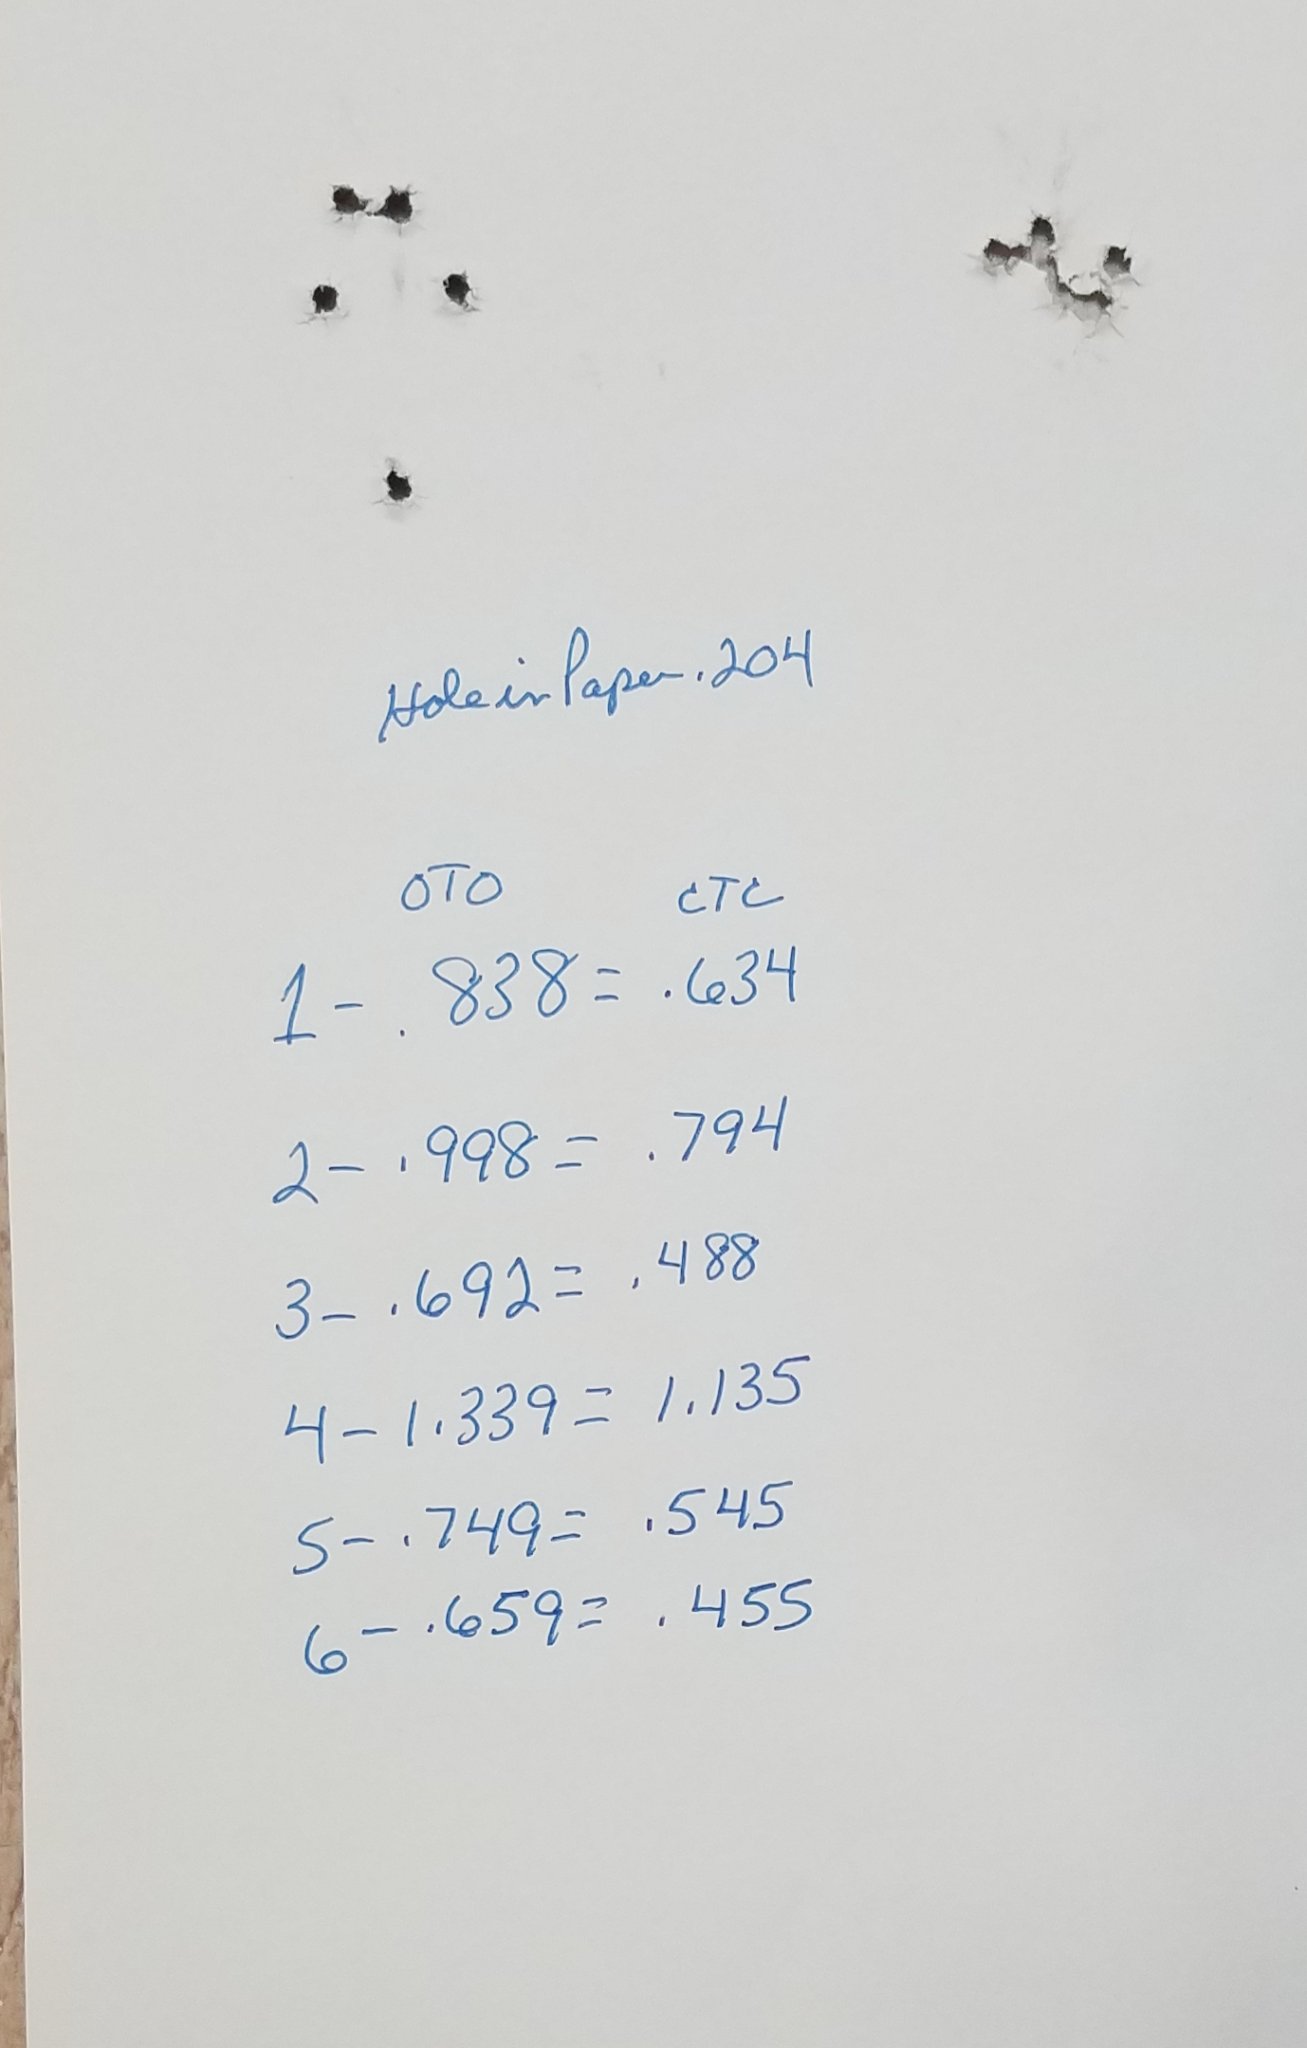 Hole in Paper .204
OTO CTC
1- .838 = .634
2- .998 = .794
3- .692 = .488
4- 1.339 = 1.135
5- .749 = .545
6- .659 = .455